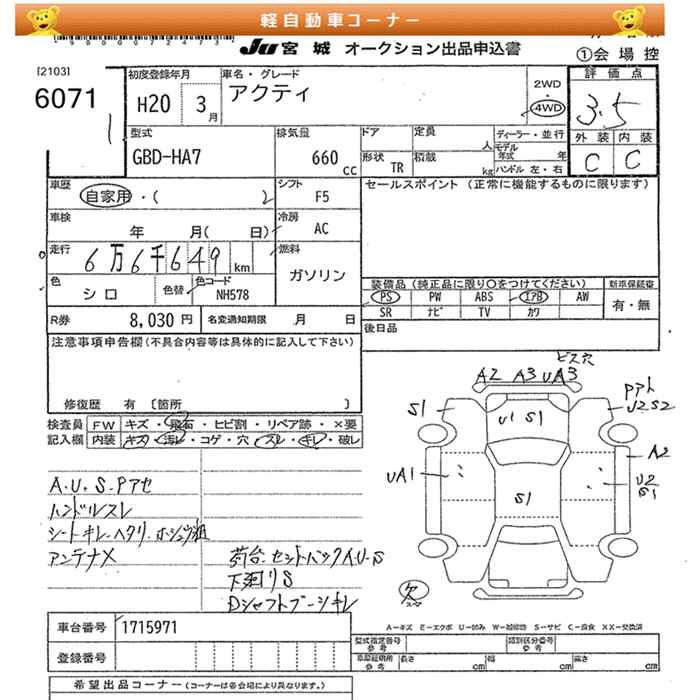 軽自動車コーナー
JU 宮城 オークション出品申込書
①会場控
[2103]
6071
初度登録年月
H20 3月
車名・グレード
アクティ
2WD
・
4WD
評価点
3.5
外装 内装
C C
型式
GBD-HA7
排気量
660 CC
ドア
定員 人
形状 TR
積載 kg
ディーラー・並行
モデル年式 年
ハンドル 左・右
車歴
自家用・( )
シフト
F5
セールスポイント (正常に機能するものに限ります)
車検
年 月( 日)
冷房
AC
走行
6万6千649km
燃料
ガソリン
色
シロ
色替
色コード
NH578
装備品(純正品に限り○をつけてください)
新車保証書
PS PW ABS エアB AW
SR ナビ TV カワ
有・無
R券 8,030円
名変通知期限 月 日
後日品
注意事項申告欄(不具合内容等は具体的に記入して下さい)
修復歴 有〔箇所 〕
検査員記入欄
FW キズ・飛石・ヒビ割・リペア跡・×要
内装 キズ・汚レ・コゲ・穴・スレ・キレ・破レ
A.U.S.Pアセ
ハンドルスレ
シートキレ・ヘタリ・ホシュウ粗
アンテナX
荷台・セットバックA.U.S
下廻りS
Dシャフトブーツキレ
ビス穴
A2 A3 UA3
S1
U1 S1
Pアト
U2S2
UA1
A2
U2
S1
S1
欠
A-キズ E-エクボ U-凹み W-補修跡 S-サビ C-腐食 XX-交換済
車台番号 1715971
登録番号
型式指定番号
参考
類別区分番号
参考
車庫証明用
参考
長さ cm
幅 cm
高さ cm
希望出品コーナー (コーナーは各会場により異なります。)